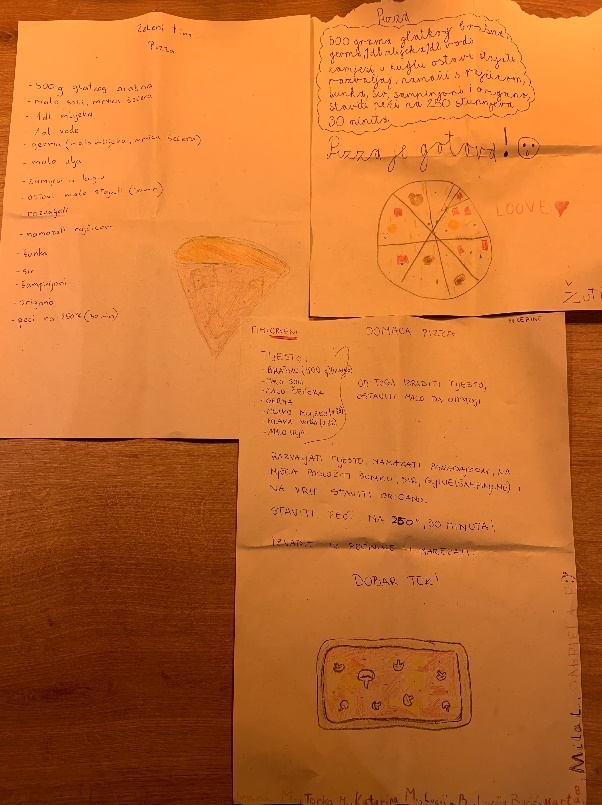 Zeleni tim
Pizza
- 500 g glatkog brašna
- malo soli, mrvica šećera
- 1 dl mlijeka
- 1 dl vode
- germa (malo mlijeka, mrvica šećera)
- malo ulja
- zamjesi u kuglu
- ostavi malo stajati
- razvaljati
- namazati rajčicom
- šunka
- sir
- šampinjoni
- origano
- peći na 250°C (30 min)
500 grama glatkog brašna,
germa, 1dl mlijeka, 1dl vode
zamjesi u kuglu ostavi stajati
razvaljaj, namaži s rajčicom,
šunka, sir, šampinjoni i origano,
staviti peći na 250 stupnjeva
30 minuta
Pizza je gotova!
LOOVE
ŽUTI
TIM: CRVENI
DOMAĆA PIZZA
TIJESTO:
- BRAŠNO (500 g)
- MALO SOLI
- MALO ŠEĆERA
- GERMA
- MALO ULJA
OD TOGA IZRADITI TIJESTO,
OSTAVITI MALO DA
RAZVALJATI TIJESTO, NAMAZATI, NA
NJEGA POLOŽITI ŠUNKU, SIR, GLJIVE (ŠAMPINJONE) I
NA VRH STAVITI ORIGANO.
STAVITI PEĆ NA 250°, 30 MINUTA!
IZVADIT IZ PEĆNICE I NAREZATI.
DOBAR TEK!
Mila L.,
Tonka M., Katarina M., Lucija B., Lucija
Marta